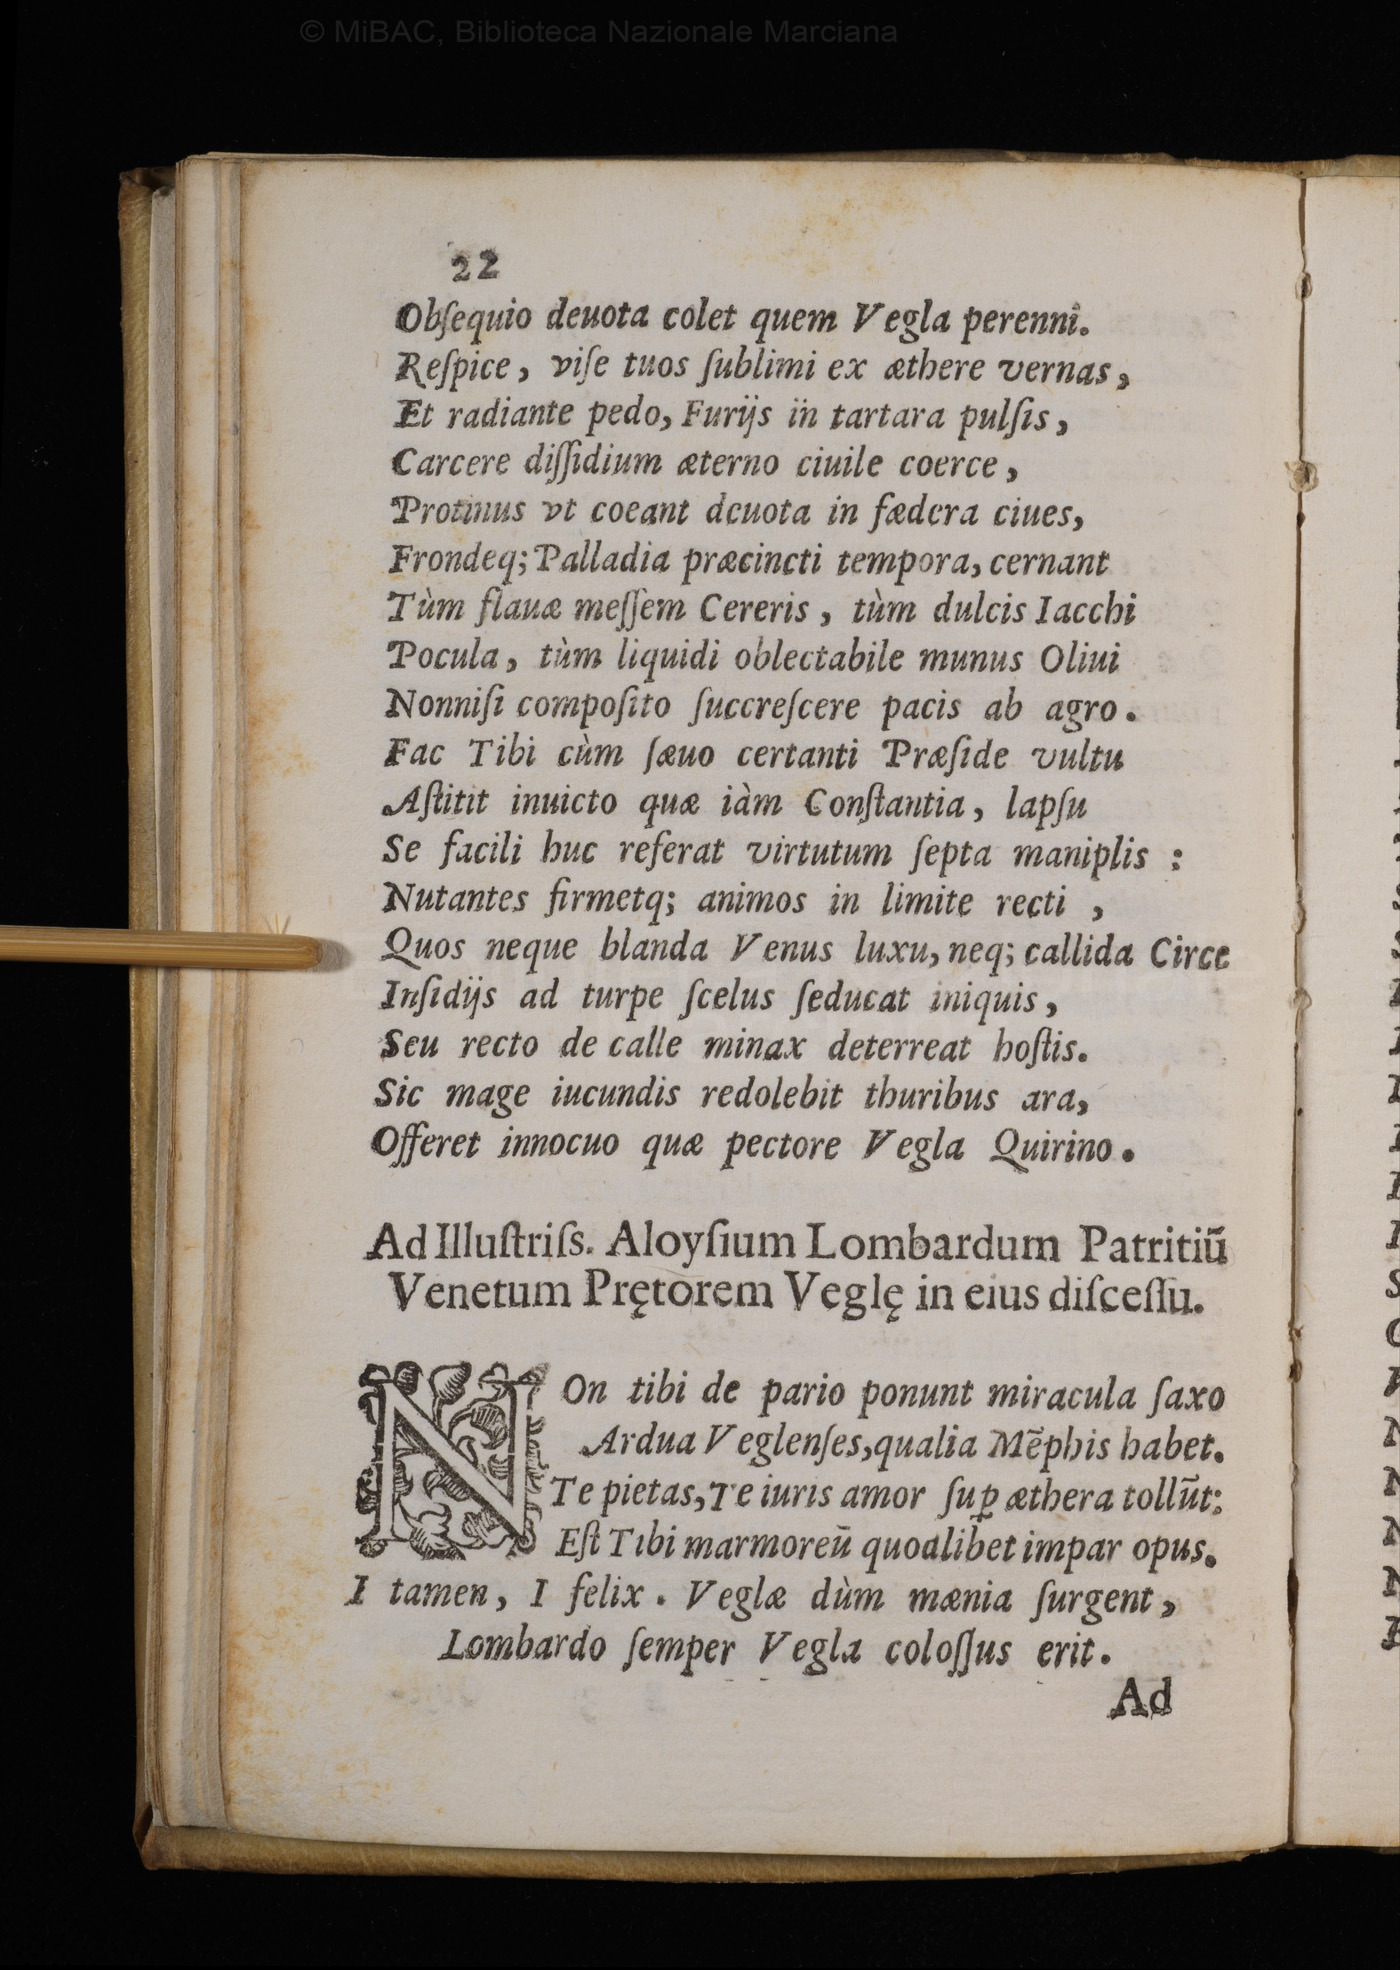 © MiBAC, Biblioteca Nazionale Marciana
22
Obſequio deuota colet quem Vegla perenni.
Reſpice, viſe tuos ſublimi ex æthere vernas,
Et radiante pedo, Furijs in tartara pulſis,
Carcere diſſidium æterno ciuile coerce,
Protinus vt coeant deuota in fædera ciues,
Frondeq; Palladia præcincti tempora, cernant
Tùm flauæ meſſem Cereris, tùm dulcis Iacchi
Pocula, tùm liquidi oblectabile munus Oliui
Nonniſi compoſito ſuccreſcere pacis ab agro.
Fac Tibi cùm ſæuo certanti Præſide vultu
Aſtitit inuicto quæ iàm Conſtantia, lapſu
Se facili huc referat virtutum ſepta maniplis :
Nutantes firmetq; animos in limite recti ,
Quos neque blanda Venus luxu, neq; callida Circe
Inſidijs ad turpe ſcelus ſeducat iniquis,
Seu recto de calle minax deterreat hoſtis.
Sic mage iucundis redolebit thuribus ara,
Offeret innocuo quæ pectore Vegla Quirino.
Ad Illuſtriſs. Aloyſium Lombardum Patritiū
Venetum Prętorem Veglę in eius diſceſſu.
NOn tibi de pario ponunt miracula ſaxo
Ardua Veglenſes, qualia Mēphis habet.
Te pietas, Te iuris amor ſuꝑ æthera tollūt:
Eſt Tibi marmoreū quodlibet impar opus.
I tamen, I felix. Veglæ dùm mænia ſurgent,
Lombardo ſemper Vegla coloſſus erit.
Ad